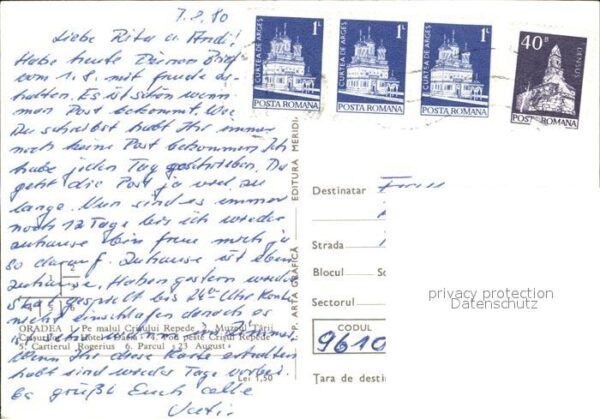 7.8.80
Liebe Rita u. Andi!
Habe heute Deinen Brief
vom 1.8. mit freude er-
halten. Es ist schön wenn
man Post bekommt. Wie
Du schreibst habt Ihr immer
noch keine Post bekommen. Ich
habe jeden Tag geschrieben. Da
geht die Post ja viel zu
lange. Nun sind es immer
noch 12 Tage bis ich wieder
zuhause bin freue mich ja
so darauf. Zuhause ist eben
zuhause. Haben gestern wieder
gespielt bis 24 Uhr
nicht einschlafen danach es
ist
Wenn Ihr diese Karte erhalten
habt sind wieder Tage vorbei.
Es grüßt Euch alle
1 L
CURTEA DE ARGEȘ
POSTA ROMANA
1 L
CURTEA DE ARGEȘ
POSTA ROMANA
1 L
CURTEA DE ARGEȘ
POSTA ROMANA
40 B
DENSUȘ
POSTA ROMANA
I. P. ARTA GRAFICĂ EDITURA MERIDI
1 2 3 4 5 6
ORADEA 1. Pe malul Crișului Repede 2. Muzeul Țării
Crișurilor 3. Hotel Dacia 4. Pod peste Crișul Repede
5. Cartierul Rogerius 6. Parcul »23 August«
Lei 1,50
Destinatar
Strada
Blocul Sc
Sectorul
CODUL
9610
Țara de desti
privacy protection
Datenschutz